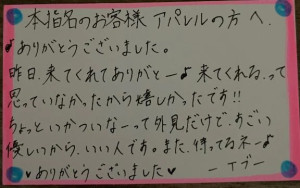 本指名のお客様 アパレルの方へ.
♪ありがとうございました。
昨日、来てくれてありがとー♪来てくれる、って
思っていなかったから嬉しかったです!!
ちょっといかついなーって外見だけで、すごい
優しいから、いい人です。また、待ってるネー♪
♥ありがとうございました♥